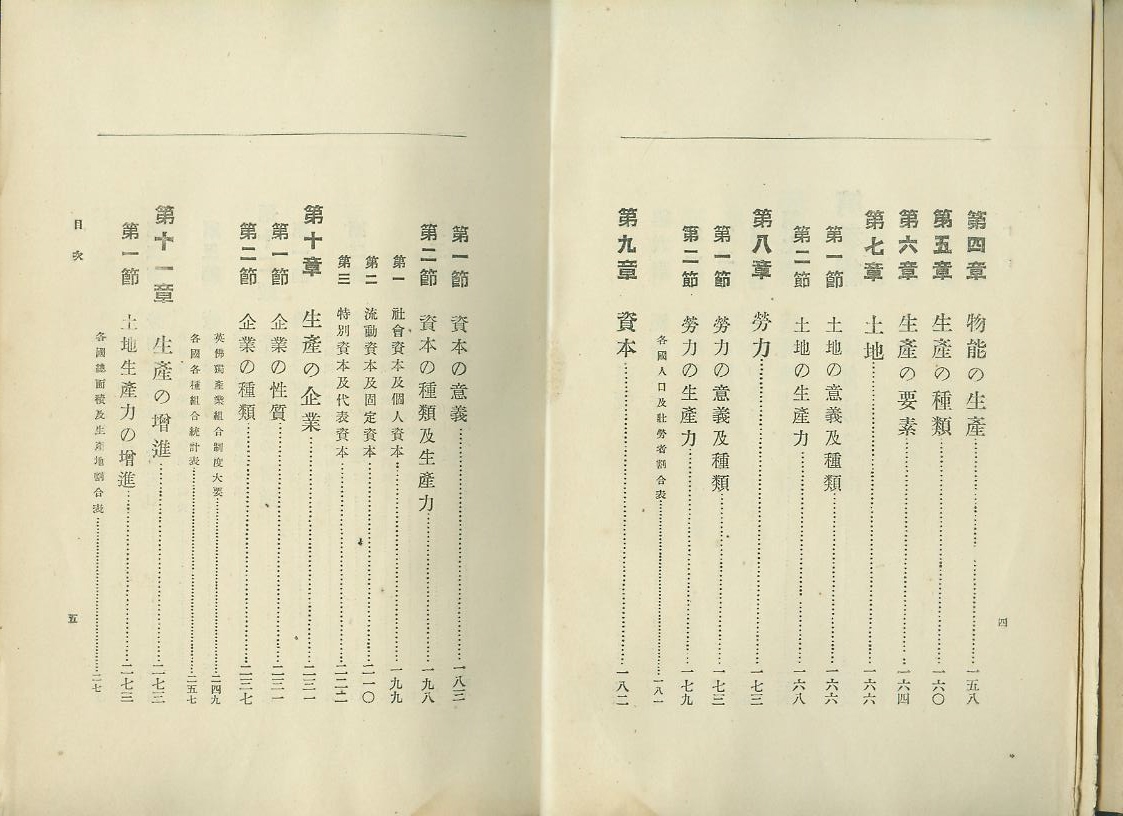 第四章 物能の生產………一五八
第五章 生產の種類………一六〇
第六章 生產の要素………一六四
第七章 土地………一六六
第一節 土地の意義及種類………一六六
第二節 土地の生產力………一六八
第八章 勞力………一七三
第一節 勞力の意義及種類………一七三
第二節 勞力の生產力………一七九
各國人口及壯勞者割合表………一八一
第九章 資本………一八二
四
第一節 資本の意義………一八三
第二節 資本の種類及生產力………一九八
第一 社會資本及個人資本………一九九
第二 流動資本及固定資本………二一〇
第三 特別資本及代表資本………二二二
第十章 生產の企業………二三一
第一節 企業の性質………二三一
第二節 企業の種類………二三七
英佛獨產業組合制度大要………二四九
各國各種組合統計表………二五七
第十一章 生產の增進………二七三
第一節 土地生產力の增進………二七三
各國總面積及生產地割合表………二七
目次
五